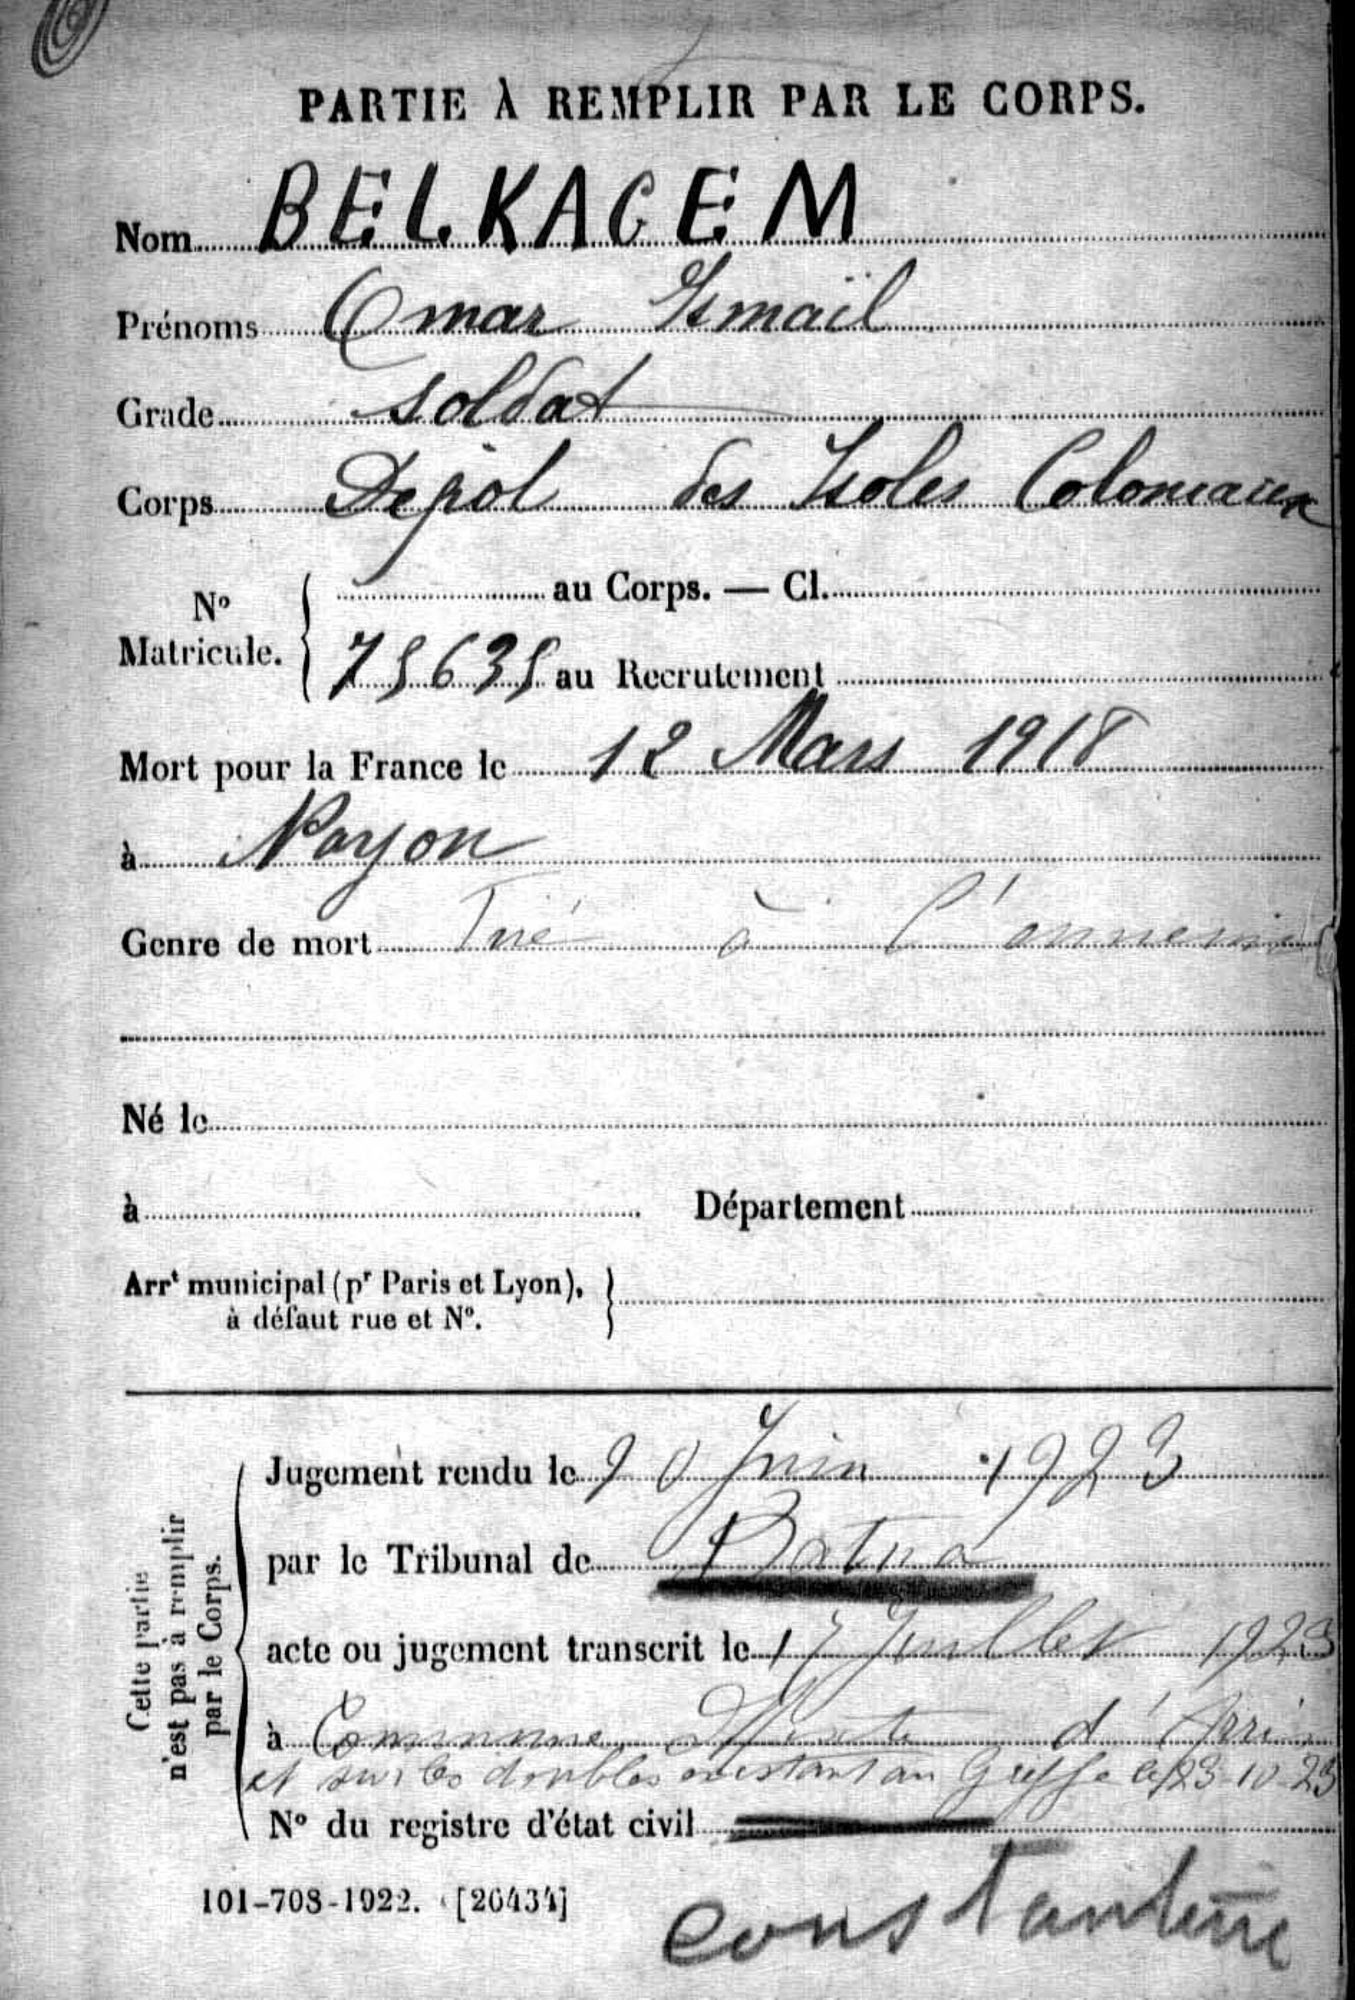 PARTIE À REMPLIR PAR LE CORPS.
Nom BELKACEM
Prénoms Omar Ismaïl
Grade soldat
Corps Dépôt des Isolés Coloniaux
N° Matricule. au Corps. — Cl.
75635 au Recrutement
Mort pour la France le 12 Mars 1918
à Noyon
Genre de mort Tué à l'ennemi
Né le
à Département
Arrt municipal (pr Paris et Lyon),
à défaut rue et N°.
Cette partie
n'est pas à remplir
par le Corps.
Jugement rendu le 20 Juin 1923
par le Tribunal de Batna
acte ou jugement transcrit le 17 Juillet 1923
à Commune Mixte d'
et sur les doubles existant au Greffe le 23-10-23
N° du registre d'état civil
101-708-1922. [26434]
Constantine